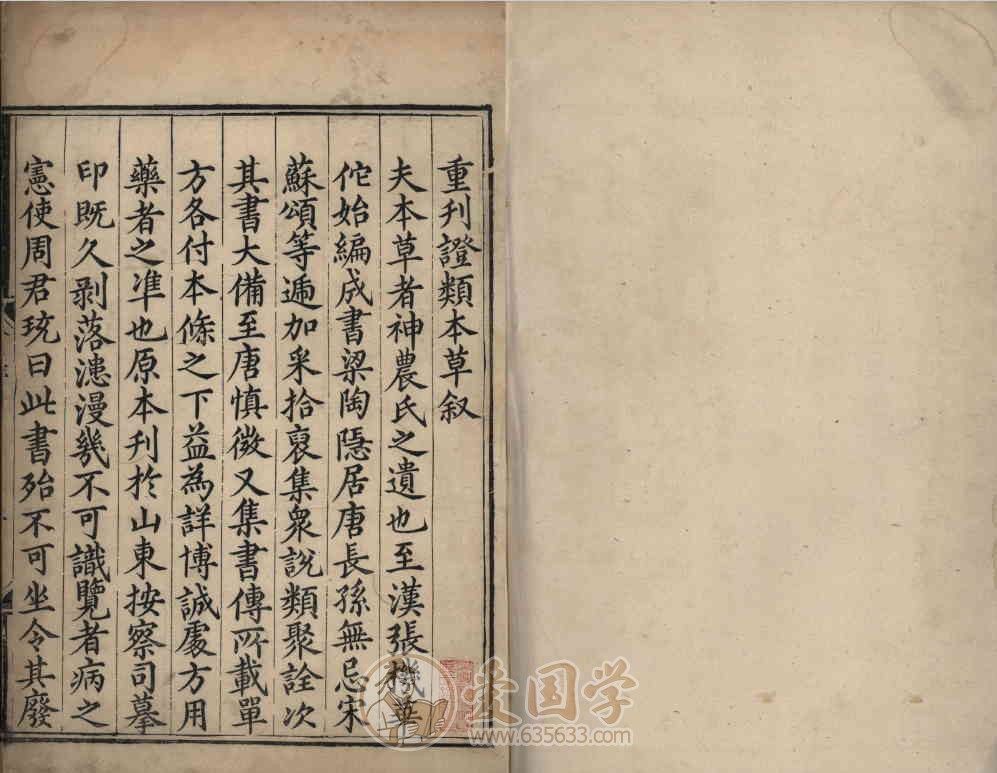 重刋證類本草叙
夫本草者神農氏之遺也至漢張機華
佗始編成書梁陶隱居唐長孫無忌宋
蘇頌等遞加采拾裒集衆說類聚詮次
其書大備至唐慎微又集書傳所載單
方各付本條之下益為詳博誠處方用
藥者之凖也原本刋於山東按察司摹
印既久剥落漶漫幾不可識覽者病之
憲使周君珫曰此書殆不可坐令其廢
爱国学
www.635633.com